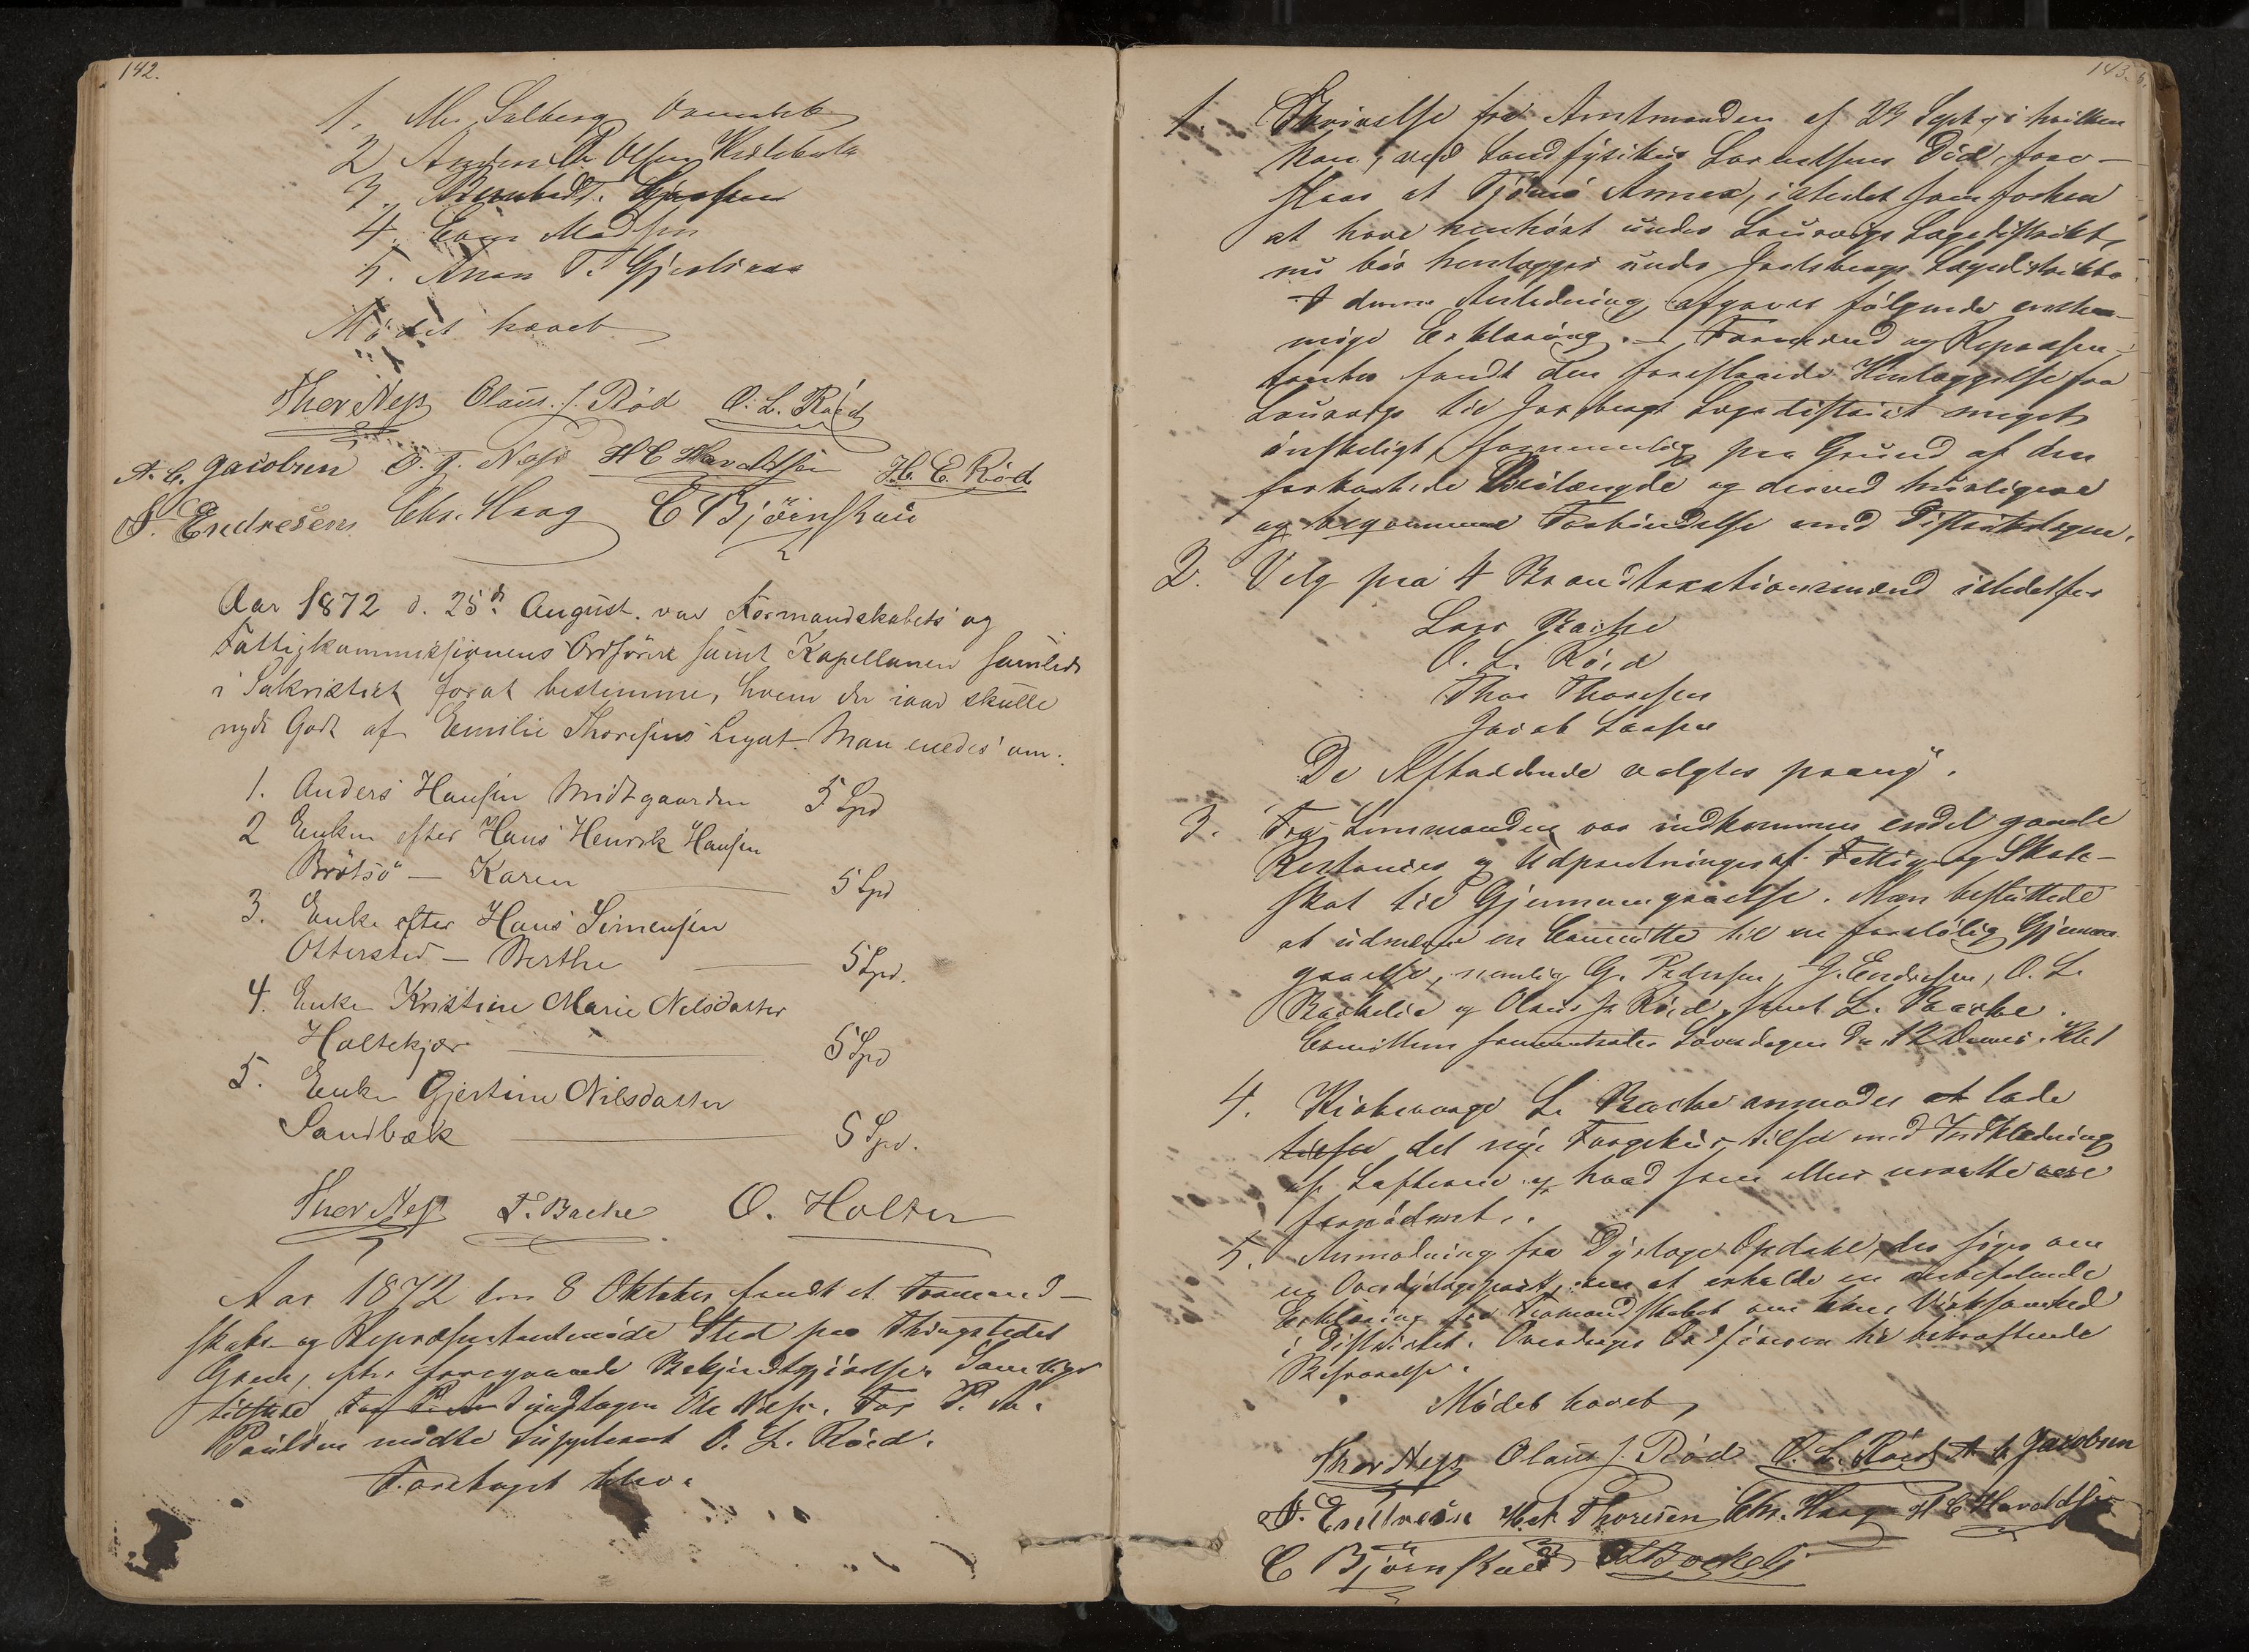 142.
1. Mr. Solberg
2 Anders Olsen
3.
4. Madsen
5. T. Gjertsen
Mödet hævet
Thor Næss Olaus. J. Röd O. L. Röed
A. C. Jacobsen O. J. Næss H C Haraldsen H. E. Röd
J. Endresen Chr. Haag C Björnskau
Aar 1872 d. 25de August. var Formandskabets og
Fattigkommissionens Ordförere samt Kapellanen samlede
i Sakristiet forat bestemme, hvem der iaar skulle
nyde Godt af Emilie Thoresens Legat. Man enedes om:
1. Anders Hansen Midtgaarden 5 Spd
2 Enken efter Hans Henrik Hansen
Brötsö — Karen 5 Spd
3. Enke efter Hans Simensen
Otterstad — Berthe 5 Spd.
4. Enke Kristine Marie Nilsdatter
Holtekjær 5 Spd
5. Enke Gjertine Nilsdatter
Sandbæk 5 Spd.
Thor Næss L. Bache O. Holter
Aar 1872 den 8 Oktober fandt et Formand-
skabs- og Repræsentantmöde Sted paa Thingstedet
Græn, efter foregaaende Bekjendtgjörelse. Samtlige
tilstede Ole Næss. For P. A.
Paulsen mödte Suppleant O. L. Röed.
Foretaget blev:
143.
1. Skrivelse fra Amtmanden af 29 Sept, i hvilken
han, ved Landfysikus Lorentsens Död, fore-
slaar at Tjömö Annex, istedet som forhen
at have henhört under Laurvigs Lægedistrikt,
nu bör henlægges under Jarlsbergs Lægedistrikt.
I denne Anledning afgaves fölgende enstem-
mige Erklæring. — Formænd og Repræsen-
tanter fandt den foreslaaede Henlæggelse fra
Laurvigs til Jarlsbergs Lægedistrict meget
önskeligt, fornemmelig paa Grund af den
forkortede Veilængde og derved hurtigere
og beqvemmere Forbindelse med Distriktslægen.
2. Valg paa 4 Brandtaxationsmænd istedetfor
Lars Bache
O. L. Röed
Thor Thoresen
Jacob Larsen
De Aftrædende valgtes paany.
3. Fra Lensmanden var indkommen endel gamle
Restancer og Udpantninger af Fattig- og Skole-
skat til Gjennemgaaelse. Man besluttede
at udnævne en Comitte til en foreløbig Gjennem-
gaaelse, nemlig G. Pedersen, J. Endresen, O. L.
og Olaus J. Röed, samt L. Bache.
Comitteen sammentræder Löverdagen den 12 Kl 1
4. Kirkeværge L. Bache anmodes at lade
det nye Fangehus tilse med Indklædning
af Lofterne og hvad som ellers maatte være
fornödent.
5. Anmodning fra Dyrlæge Opdahl, der söger om
en Overdyrlægepost, om at erholde en anbefalende
Erklæring fra Formandskabet om hans Virksomhed
i Distriktet. Overdrages Ordföreren til bekræftende
Besvarelse.
Mödet hævet,
Thor Næss Olaus J. Röd O. L. Röed A C Jacobsen
J. Endresen Thoresen Chr. Haag H C Haraldsen
C Björnskau